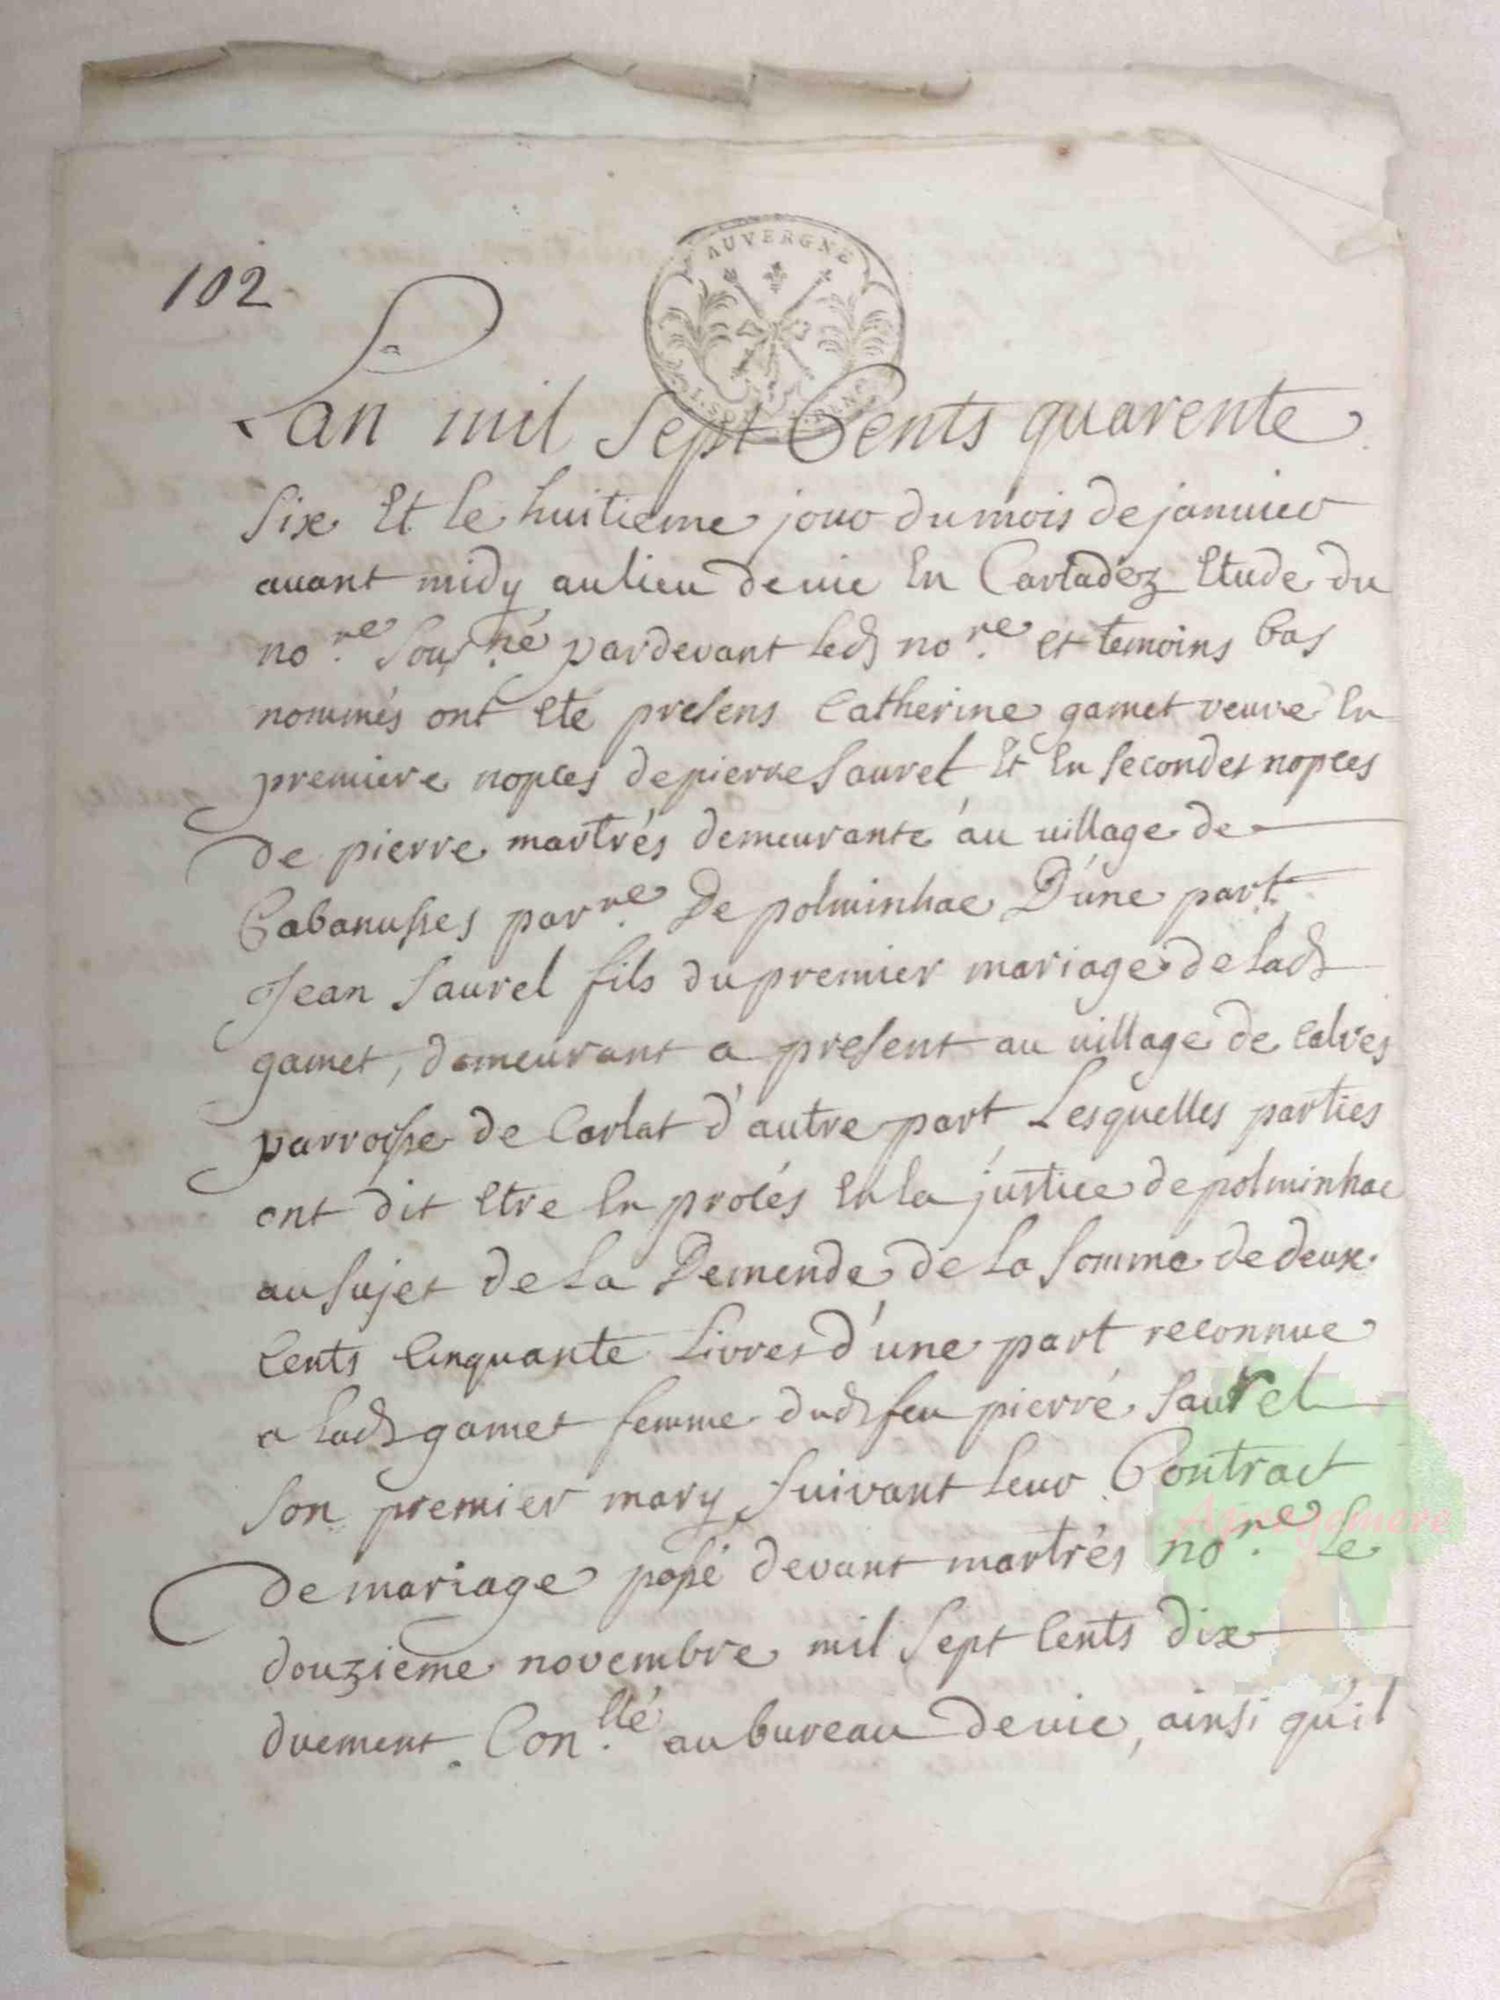 102
AUVERGNE
Lan mil sept Cents quarente
six Et le huitieme jour du mois de januier
auant midy au lieu de uic En Carladez Etude du
no.re sous.né pardevant led no.re et temoins bas
nommés ont eté presens Catherine gamet veuve En
premiere nopces de pierre Saurel Et En secondes nopces
de pierre martrés demeurante au uillage de
Cabanusses parr.re De polminhac D'une part.
Jean Saurel fils du premier mariage de lad
gamet, demeurant a present au uillage de Calves
parroisse de Carlat d'autre part Lesquelles parties
ont dit etre En procés En la justice de polminhac
au sujet de La Demende de La somme de deux
Cents Cinquante Livres d'une part reconnue
a lad gamet femme dud feu pierre Saurel
son premier mary suivant leur Contract
de mariage passé devant martrés no.re Le
douzieme novembre mil sept Cents dix
duement Con.llé au bureau de uic, ainsi qu'il
Apregomere